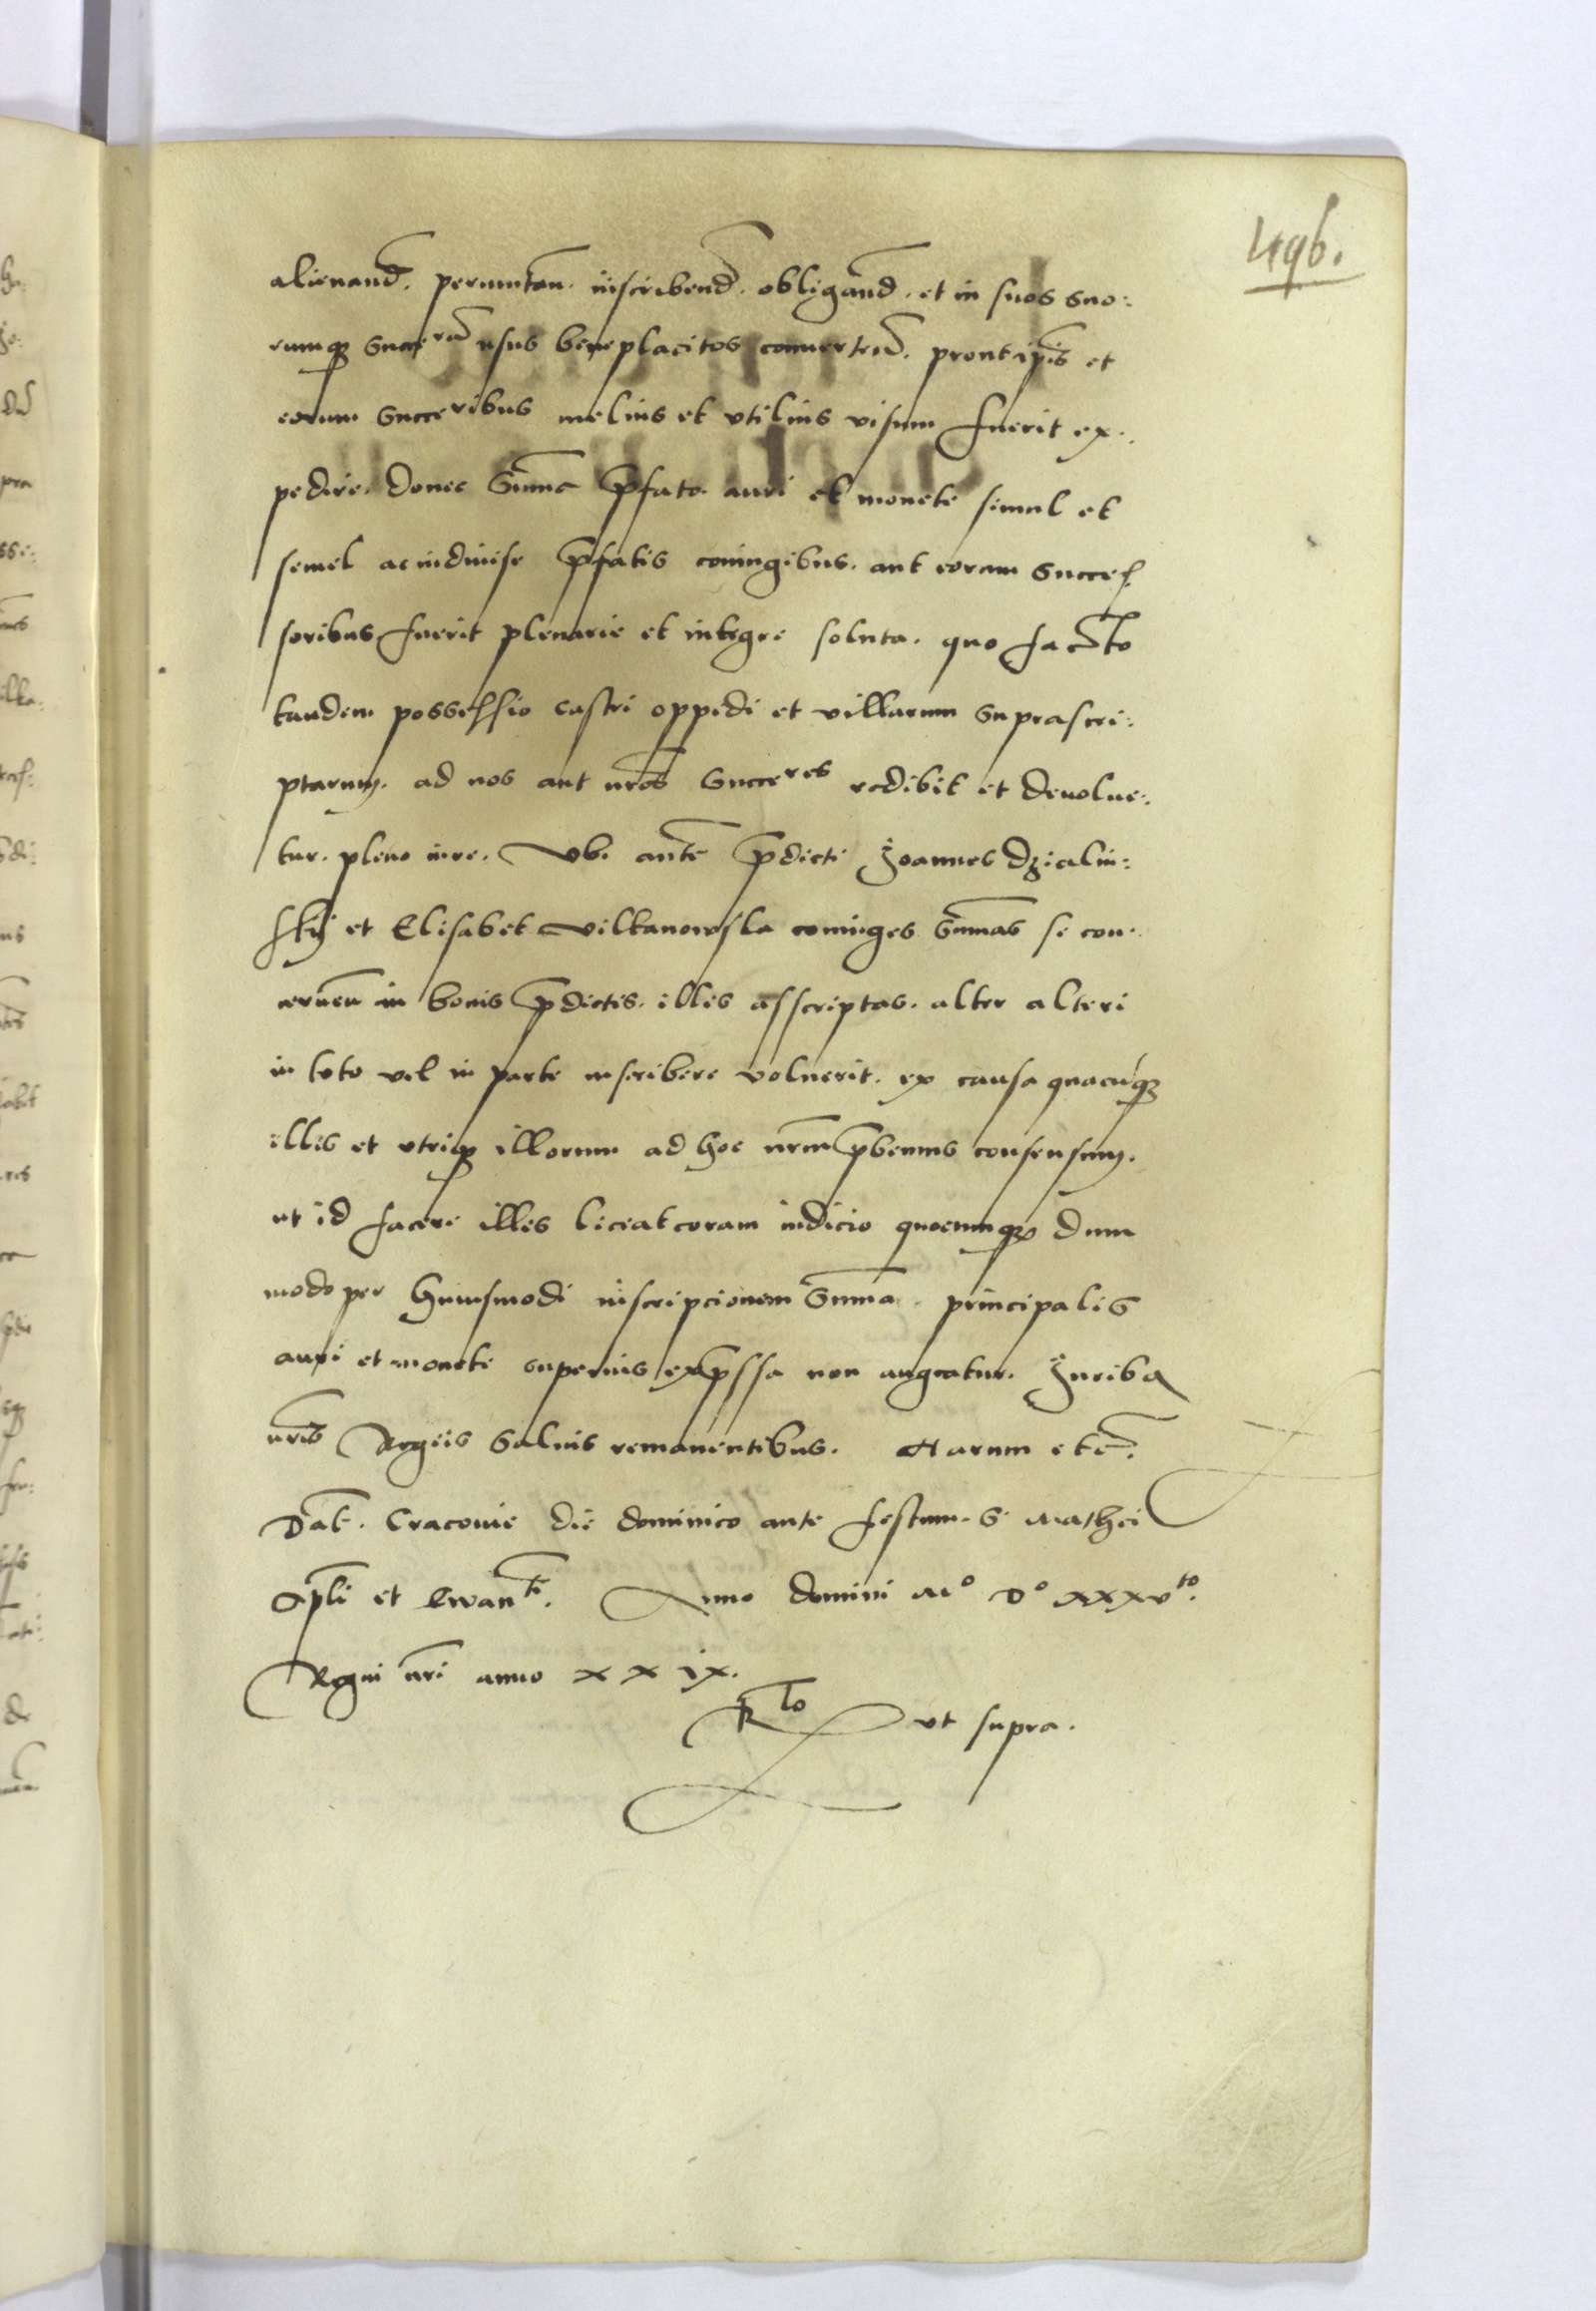 496.
alienand. permutan. inscribend. obligand. et in suos suo:
rumq3 succerum usus beneplacitos convertend. prout ipsis et
eorum succeribus melius et vtilius visum fuerit ex.
pedire. donec summa pfata auri et monete simul et
semel ac indivise pfatis coniugibus. aut eorum succes
soribus fuerit plenarie et integre soluta. quo facto
tandem possessio castri oppidi et villarum suprascri:
ptarum. ad nos aut nros succeres redibit et devolve:
tur. pleno iure. Vbi autem pdicti Joannes Dzialin:
skij et Elisabet Vilkanowska coniuges summas se con:
cernen in bonis pdictis. illis asscriptas. alter alteri
in toto vel in parte inscribere voluerit. ex causa quacuq3
illis et vtriq3 illorum ad hoc nrm pbemus consensum.
ut id facere illis liceat coram iudicio quocumq3 dum
modo per huiusmodi inscripcionem summa. principalis
auri et monete superius expssa non augeatur. Juribq
nris Regiis salvis remanentibus. Harum etc.
Dat. Cracovie die dominico ante festum S Mathei
Apli et Ewante. Anno domini Mº Dº xxxvto.
Regni nri anno xxix.
Rlo vt supra.